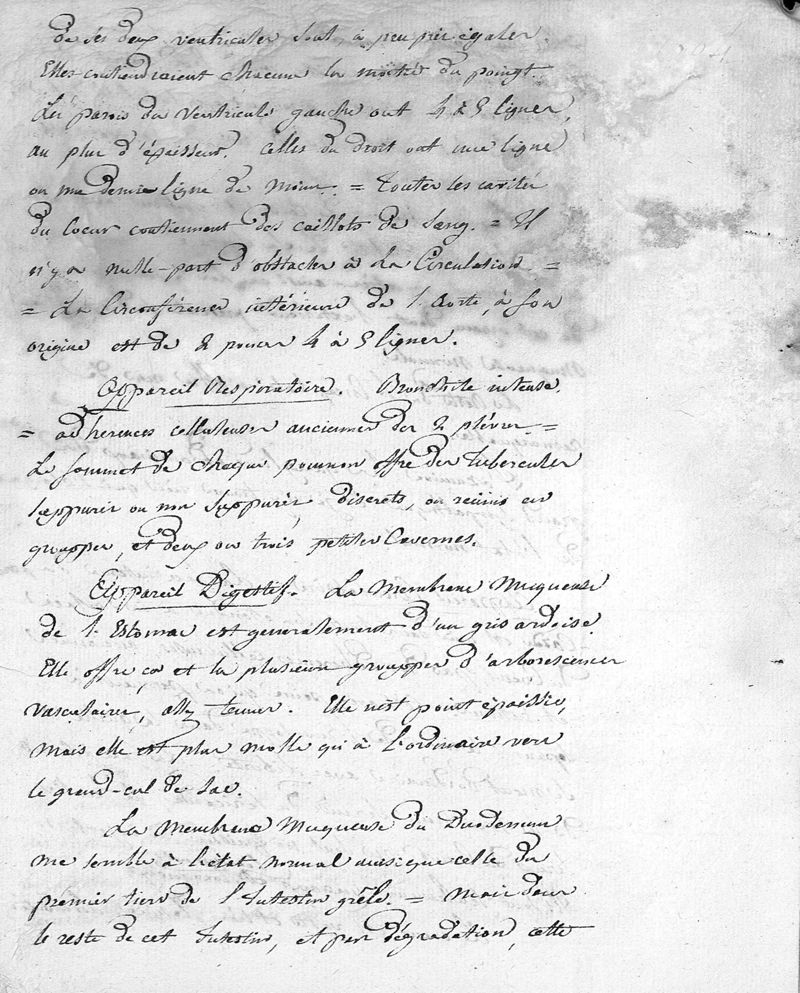 de ses deux ventricules sont, à peu près égales.
Elles contiendraient chacune la moitié du poingt.
Les parois du ventricule gauche ont 4 à 5 lignes,
au plus d'épaisseur. Celles du droit ont une ligne
ou une demie ligne de moins. = Toutes les cavités
du Coeur contiennent des caillots de Sang. = Il
n'y a nulle-part d'obstacles à la Circulation. =
= La Circonférence intérieure de l'Aorte, à son
origine est de 2 pouces 4 à 5 lignes.
Appareil Respiratoire. Bronchite intense.
= adherences celluleuses anciennes des 2 plévres. =
Le sommet de chaque poumon offre des tubercules
suppurés ou non suppurés, discrets, ou réunis en
grouppes, et deux ou trois petites Cavernes.
Appareil Digestif. La Membrane Muqueuse
de l'Estomac est generalement d'un gris ardoisé.
Elle offre ça et la plusieurs grouppes d'arborescences
vasculaires, assez tenues. Elle n'est point épaissie,
mais elle est plus molle qu'à l'ordinaire vers
le grand-cul de sac.
La Membrane Muqueuse du Duodenum
me semble à l'état normal ainsi que celle du
premier tiers de l'Intestin grêle. = Mais dans
le reste de cet Intestin, et par dégradation, cette